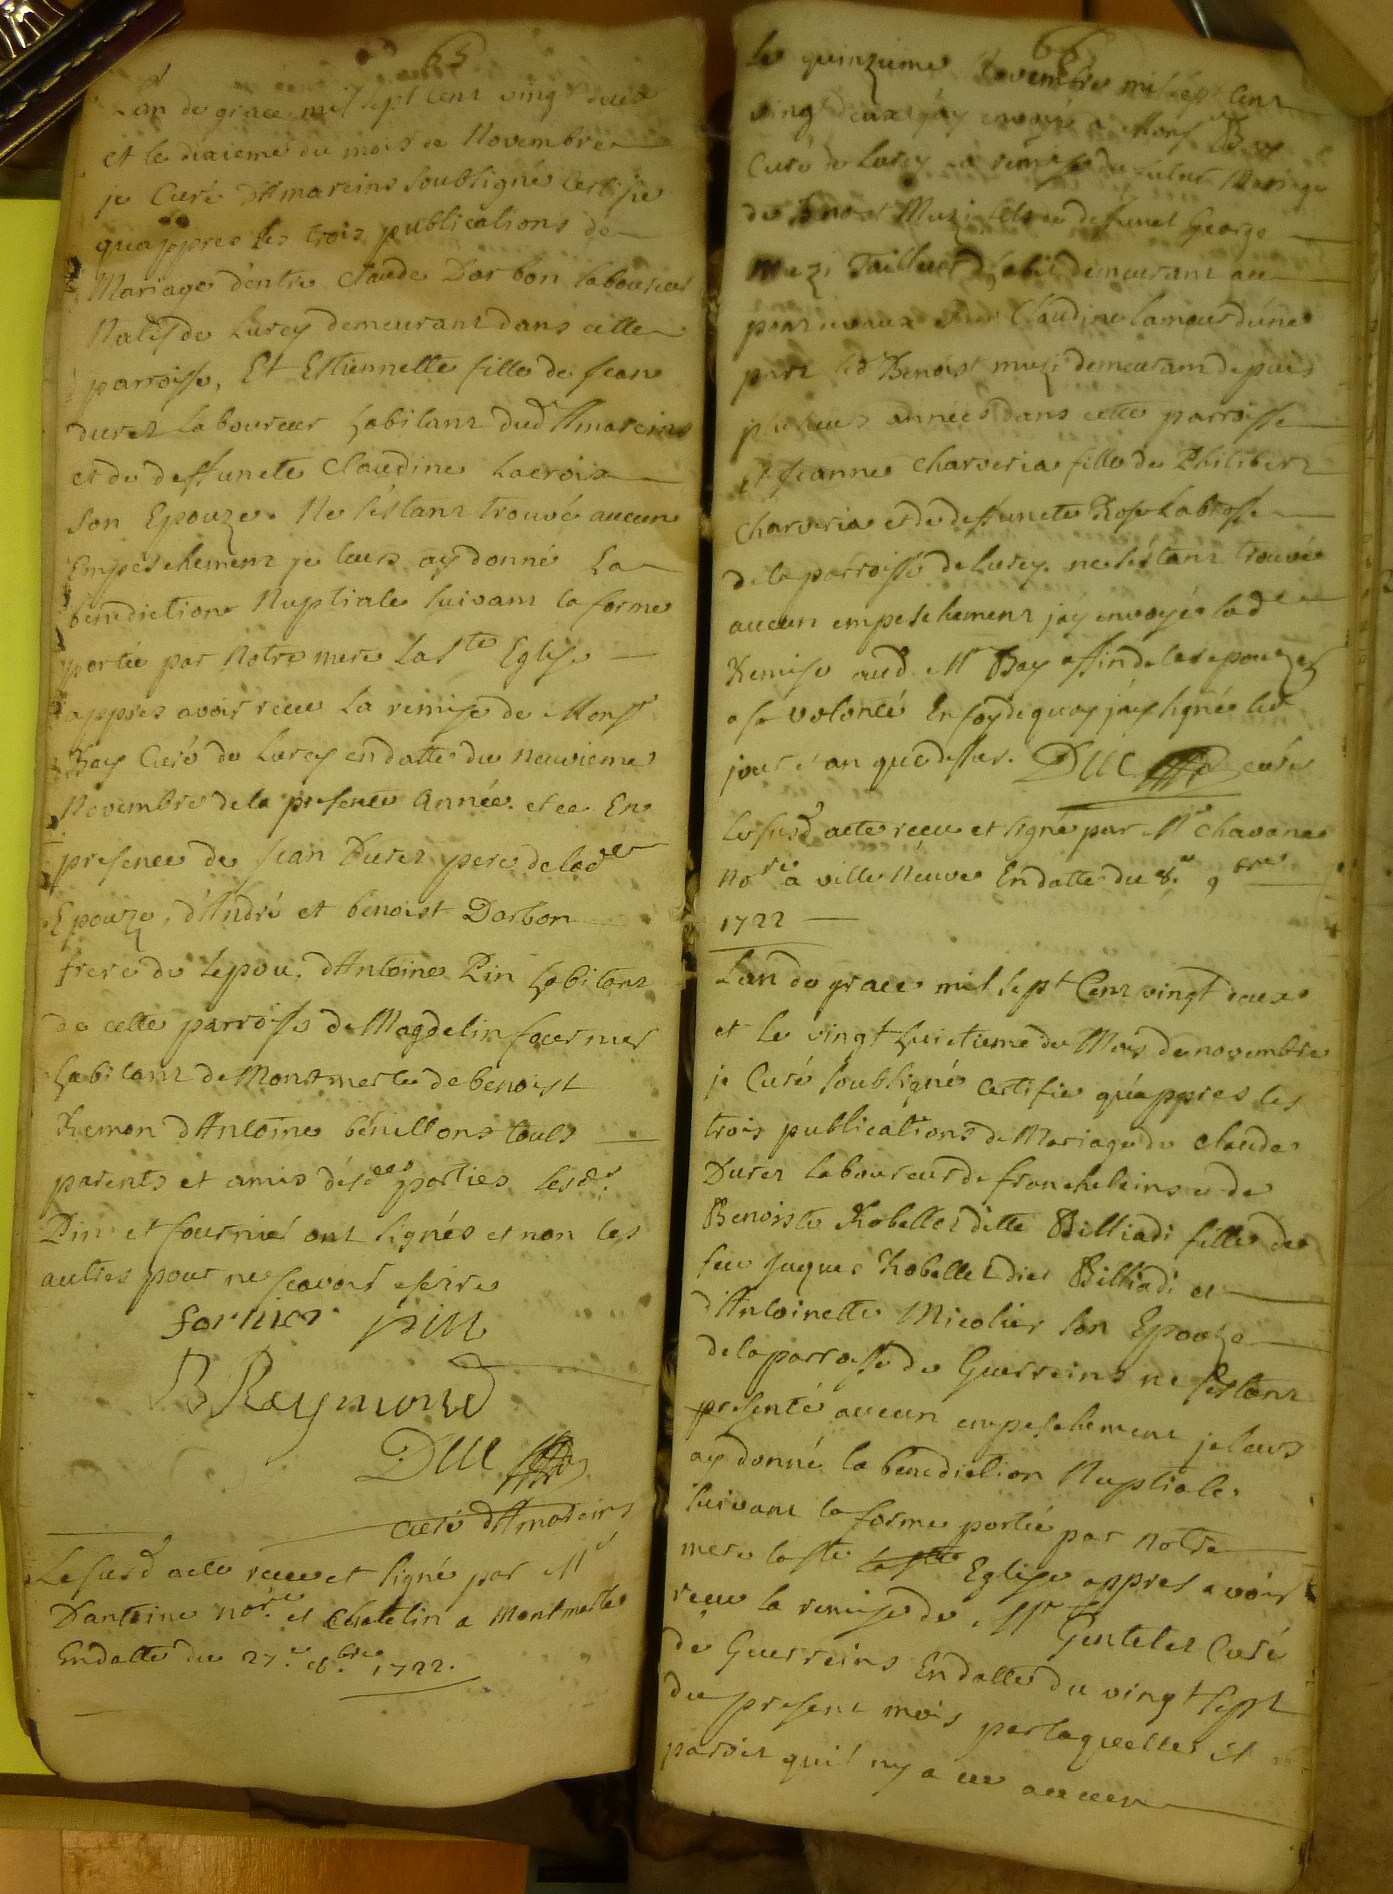 65
L'an de grace mil sept cent vingt deux
et le dixieme du mois de Novembre
je Curé d'Amareins soubsigné certifie
qu'appres les trois publications de
Mariage d'entre Claude Darbon laboureur
Natif de Lurcy demeurant dans cette
parroisse, Et Estiennette fille de Jean
Duret laboureur habitant dud Amareins
et de deffuncte Claudine Lacroix
son Epouze. Ne s'éstant trouvé aucun
Empéschement je leurs ay donné La
bénediction Nuptiale suivant la forme
portée par Notre mere La Ste Eglise
appres avoir receu La remise de Monsr
Bay Curé de Lurcy en datte du neuvieme
Novembre de la presente Année. et ce En
presence de Jean Duret pere de lad
Epouze, d'André et benoist Darbon
frere de lepou. d'Antoine Pin habitant
de cette parroisse de Magdelin fournier
habitant de Montmerle de benoist
Remon d'Antoine bénillons touts
parents et amis désd parties lesd
Pin et fournié ont signés et non les
autres pour ne scavoir escrire
fornier pin
B Raymond
DUC
curé d'Amareins
Le susd acte receu et signé par Mr
Dantoine nore et Chatelin a Montmerle
En datte du 27.e 8.bre 1722.
66
Le quinzieme Novembre mil sept cent
vingt deux j'ay envoyé a Monsr Bay
Curé de Lurcy la remise du futur Mariage
de Benoist Muzi fils de defunct George
Muzi Tailleur d'habit demeurant au
et de Claudine lamour d'une
part led Benoist muzi demeurant depuis
plusieurs années dans cette parroisse
et Jeanne Charveria fille de Philibert
Charveria et de deffuncte Rose Labrosse
de la parroisse de Lurcy. ne s'éstant trouvé
aucun empeschement j'ay envoyé lad
Remise aud. Mr Bay affin de les epouzer
a sa volonté En foy de quoy j'ay signé led
jour et an que dessus. DUC curé
Le susd acte receu et signé par Mr Chavane
Nore a ville Neuve En datte du 8.e 9bre
1722
L'an de grace mil sept Cent vingt deux
et le vingt huictieme du Mois de novembre
je Curé soubsigné certifie qu'appres les
trois publications de Mariage de Claude
Duret laboureur de francheleins et de
Benoiste Robellet ditte Billiadi fille de
feu Jaques Robellet dict Billiadi et
d'Antoinette Micolier son Epouze
de la parroisse de Guerreins ne s'estant
presenté aucun empeschement je leurs
ay donné la bénediction Nuptiale
suivant la forme portée par notre
mere la ste la ste Eglise appres avoir
receu la remise de Mr Gentelet Curé
de Guerreins En datte du vingt sept
du present mois par laquelle il
paroit qu'il ny a eu aucun